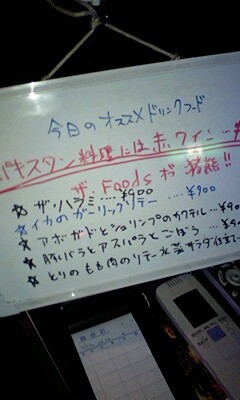 今日のオススメドリンクフード
パキスタン料理には赤ワイン…
ザ・Foods が 堪能!!
☆ ザ・ハラミ…. ¥900
☆ イカのガーリックソテー ….¥900
☆ アボガドと
のカクテル…¥9
☆ 豚バラとアスパラとごぼう … ¥9
☆ とりのもも肉のソテー 水菜サラダ仕立て